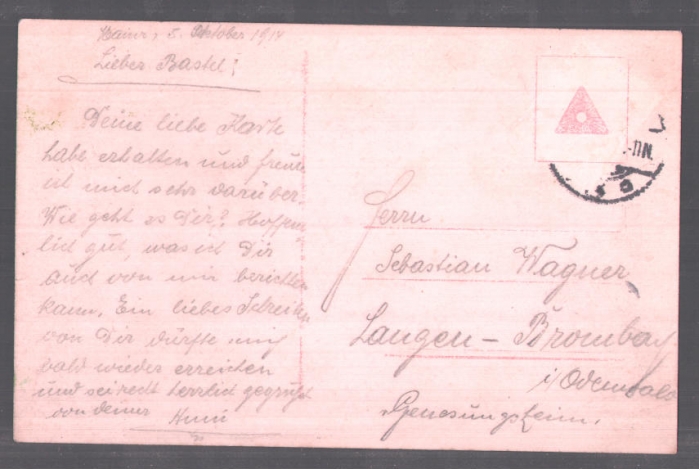 Mainz, 5. Oktober 1914
Lieber Bastel!
Deine liebe Karte
habe erhalten und freue
ich mich sehr darüber.
Wie geht es Dir? Hoffent
lich gut, was ich Dir
auch von mir berichten
kann. Ein liebes Schreiben
von Dir dürfte mich
bald wieder erreichen
und sei recht herzlich gegrüßt
von Deiner
Anni
-11N.
Herrn
Sebastian Wagner
Langen-Brombach
i/Odenwald
Genesungsheim.